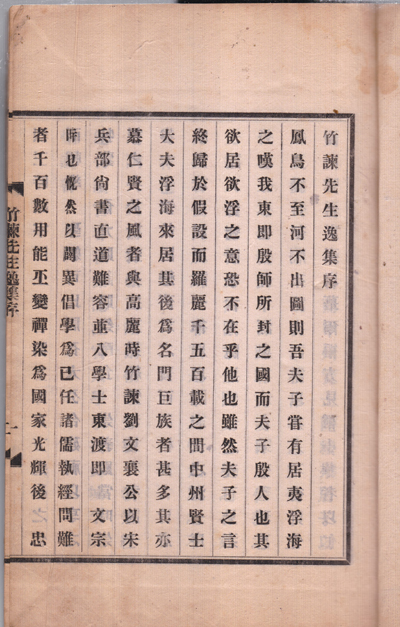 竹諫先生逸集序
鳳鳥不至河不出圖則吾夫子嘗有居夷浮海
之嘆我東卽殷師所封之國而夫子殷人也其
欲居欲浮之意恐不在乎他也雖然夫子之言
終歸於假設而羅麗千五百載之間中州賢士
大夫浮海來居其後爲名門巨族者甚多其亦
慕仁賢之風者與高麗時竹諫劉文襄公以宋
兵部尙書直道難容並八學士東渡卽 文宗
時也慨然以闢異倡學爲己任諸儒執經問難
者千百數用能丕變禪染爲國家光輝後之忠
竹諫先生逸集序